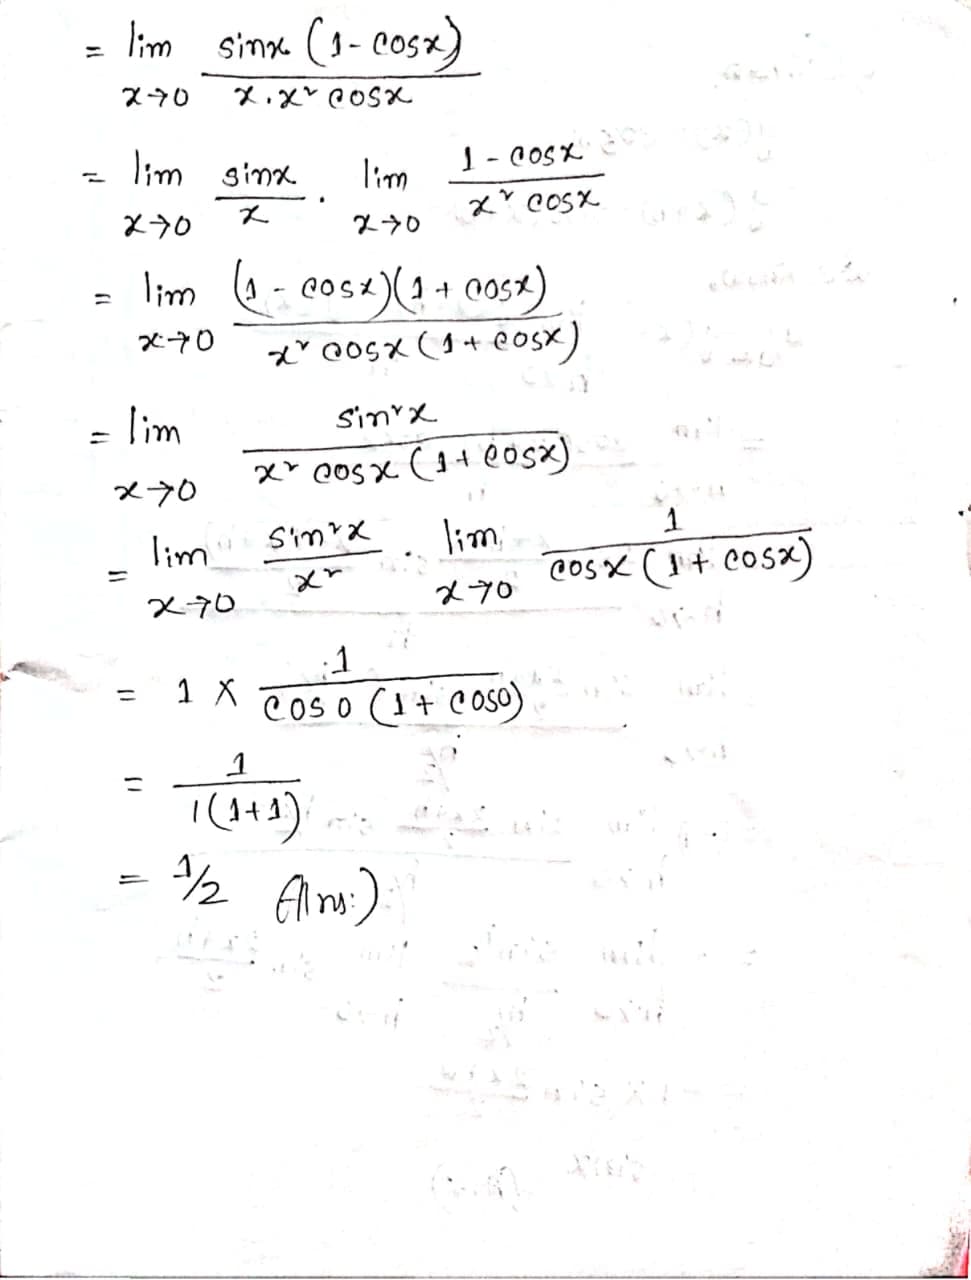 = lim x→0 sinx (1 - cosx) / x.x² cosx
= lim x→0 sinx / x . lim x→0 1 - cosx / x² cosx
= lim x→0 (1 - cosx)(1 + cosx) / x² cosx (1 + cosx)
= lim x→0 sin²x / x² cosx (1 + cosx)
= lim x→0 sin²x / x² . lim x→0 1 / cosx (1 + cosx)
= 1 × 1 / cos0 (1 + cos0)
= 1 / 1(1+1)
= 1/2 (Ans:)